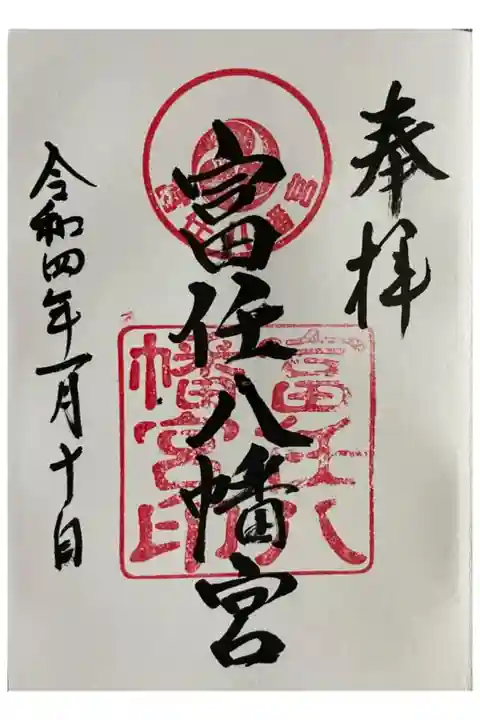 奉拝
富任八幡宮
富任八幡宮
富任八
幡宮印
令和四年一月十日